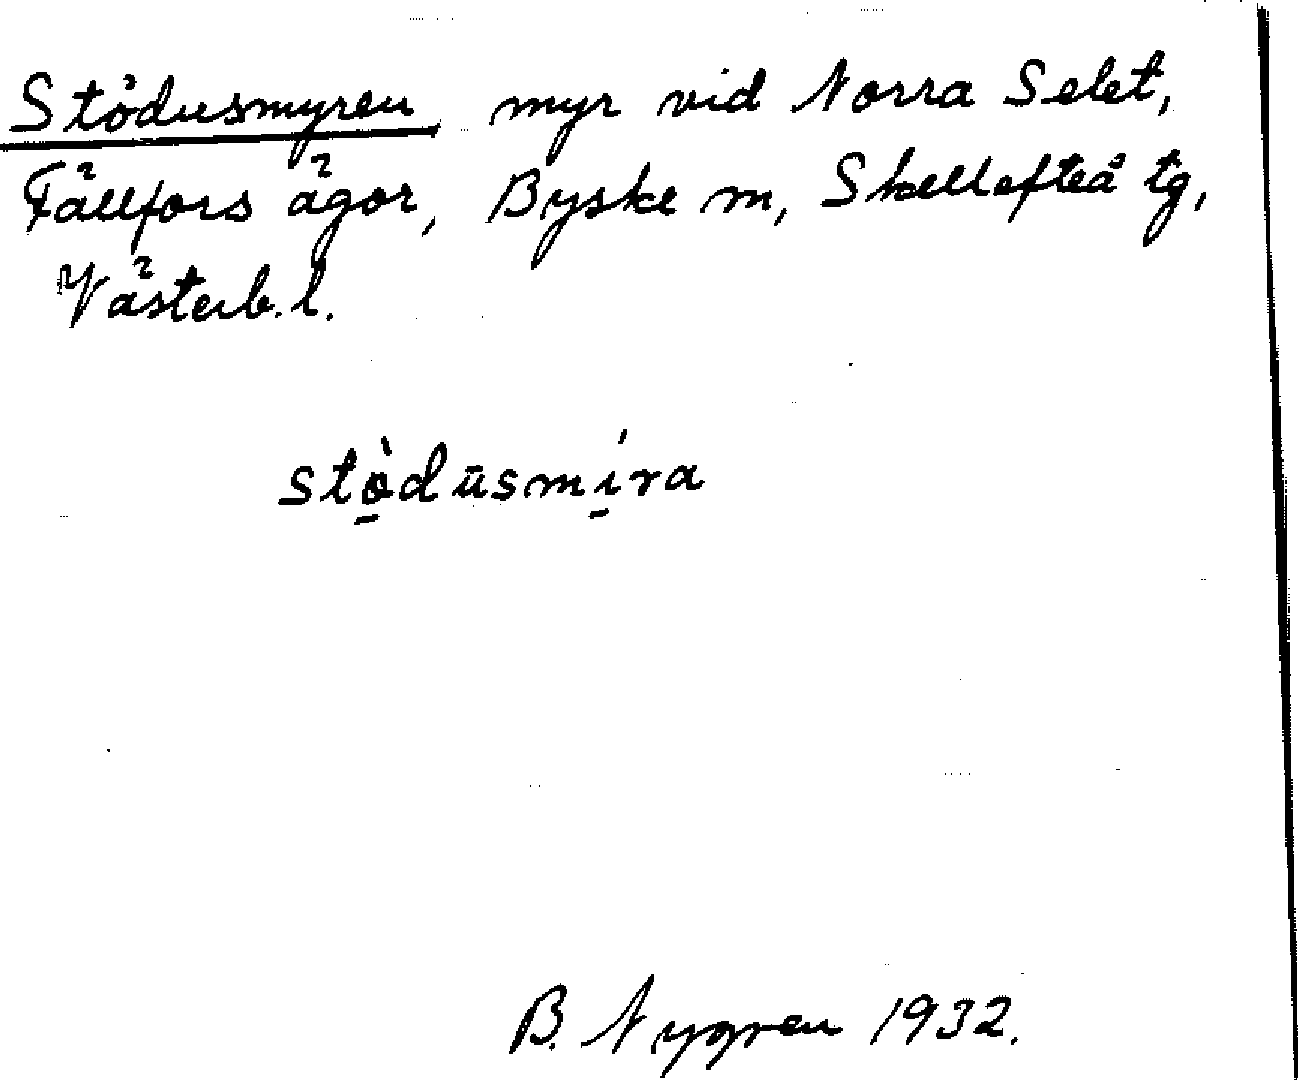 Stödusmyren myr vid Norra Selet,
Fällfors ägor, Byske m, Skellefteå tg,
Västerb. l.
stø̱̀dūsmí̱ra
B. Nygren 1932.